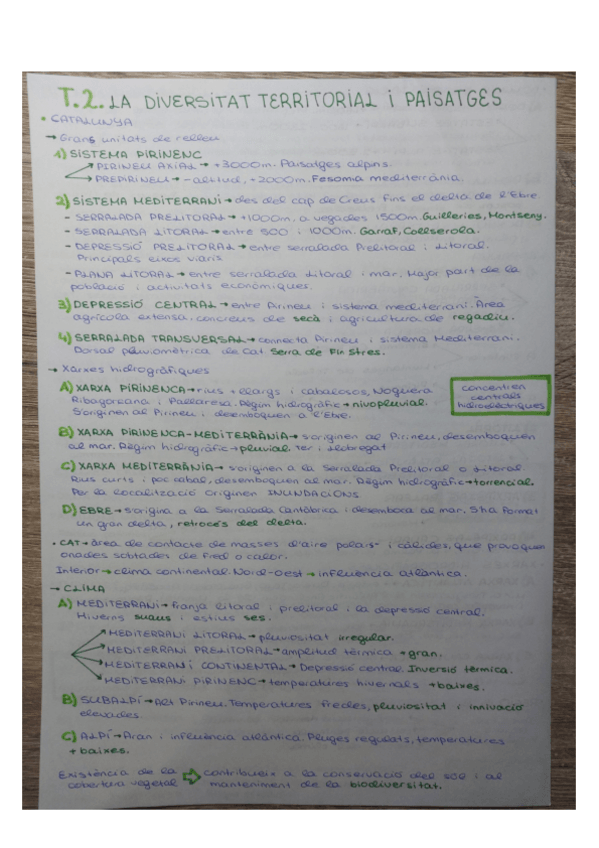 T.2. LA DIVERSITAT TERRITORIAL i PAISATGES
• CATALUNYA
→ Grans unitats de relleu
1) SISTEMA PIRINENC
→ PIRINEU AXIAL → +3000m. Paisatges alpins.
→ PREPIRINEU → -altitud, +2000m. Fesomia mediterrània.
2) SISTEMA MEDITERRANI → des del cap de Creus fins el delta de l'Ebre
- SERRALADA PRELITORAL → +1000m, a vegades 1500m. Guilleries, Montseny.
- SERRALADA LITORAL → entre 500 i 1000m. Garraf, Collserola.
- DEPRESSIÓ PRELITORAL → entre serralada Prelitoral i Litoral.
Principals eixos viaris
- PLANA LITORAL → entre serralada litoral i mar. Major part de la
població i activitats econòmiques.
3) DEPRESSIÓ CENTRAL → entre Pirineu i sistema mediterrani. Àrea
agrícola extensa, conreus de secà i agricultura de regadiu.
4) SERRALADA TRANSVERSAL → connecta Pirineu i sistema Mediterrani.
Dorsal pluviomètrica de Cat. Serra de Finestres.
→ Xarxes hidrogràfiques
A) XARXA PIRINENCA → rius +llargs i cabalosos, Noguera
Ribagorçana i Pallaresa. Règim hidrogràfic → nivopluvial.
S'originen al Pirineu i desemboquen a l'Ebre.
concentren
centrals
hidroelèctriques
B) XARXA PIRINENCA-MEDITERRÀNIA → s'originen al Pirineu, desemboquen
al mar. Règim hidrogràfic → pluvial. Ter i Llobregat
C) XARXA MEDITERRÀNIA → s'originen a la Serralada Prelitoral o Litoral
Rius curts i poc cabal, desemboquen al mar. Règim hidrogràfic → torrencial.
Per la localització originen INUNDACIONS
D) EBRE → s'origina a la Serralada Cantàbrica i desemboca al mar. S'ha format
un gran delta, retrocés del delta.
• CAT → àrea de contacte de masses d'aire polars i càlides, que provoquen
onades sobtades de fred o calor.
Interior → clima continental. Nord-Oest → influència atlàntica.
→ CLIMA
A) MEDITERRANI → franja litoral i prelitoral i la depressió central.
Hiverns suaus i estius secs.
→ MEDITERRANI LITORAL → pluviositat irregular.
→ MEDITERRANI PRELITORAL → amplitud tèrmica +gran.
→ MEDITERRANI CONTINENTAL → Depressió central. Inversió tèrmica.
→ MEDITERRANI PIRINENC → temperatures hivernals +baixes.
B) SUBALPÍ → Alt Pirineu. Temperatures fredes, pluviositat i innivació
elevades.
C) ALPÍ → Aran i influència atlàntica. Pluges regulars, temperatures
+ baixes.
Existència de la ⇒ contribueix a la conservació del sòl i al
cobertura vegetal manteniment de la biodiversitat.